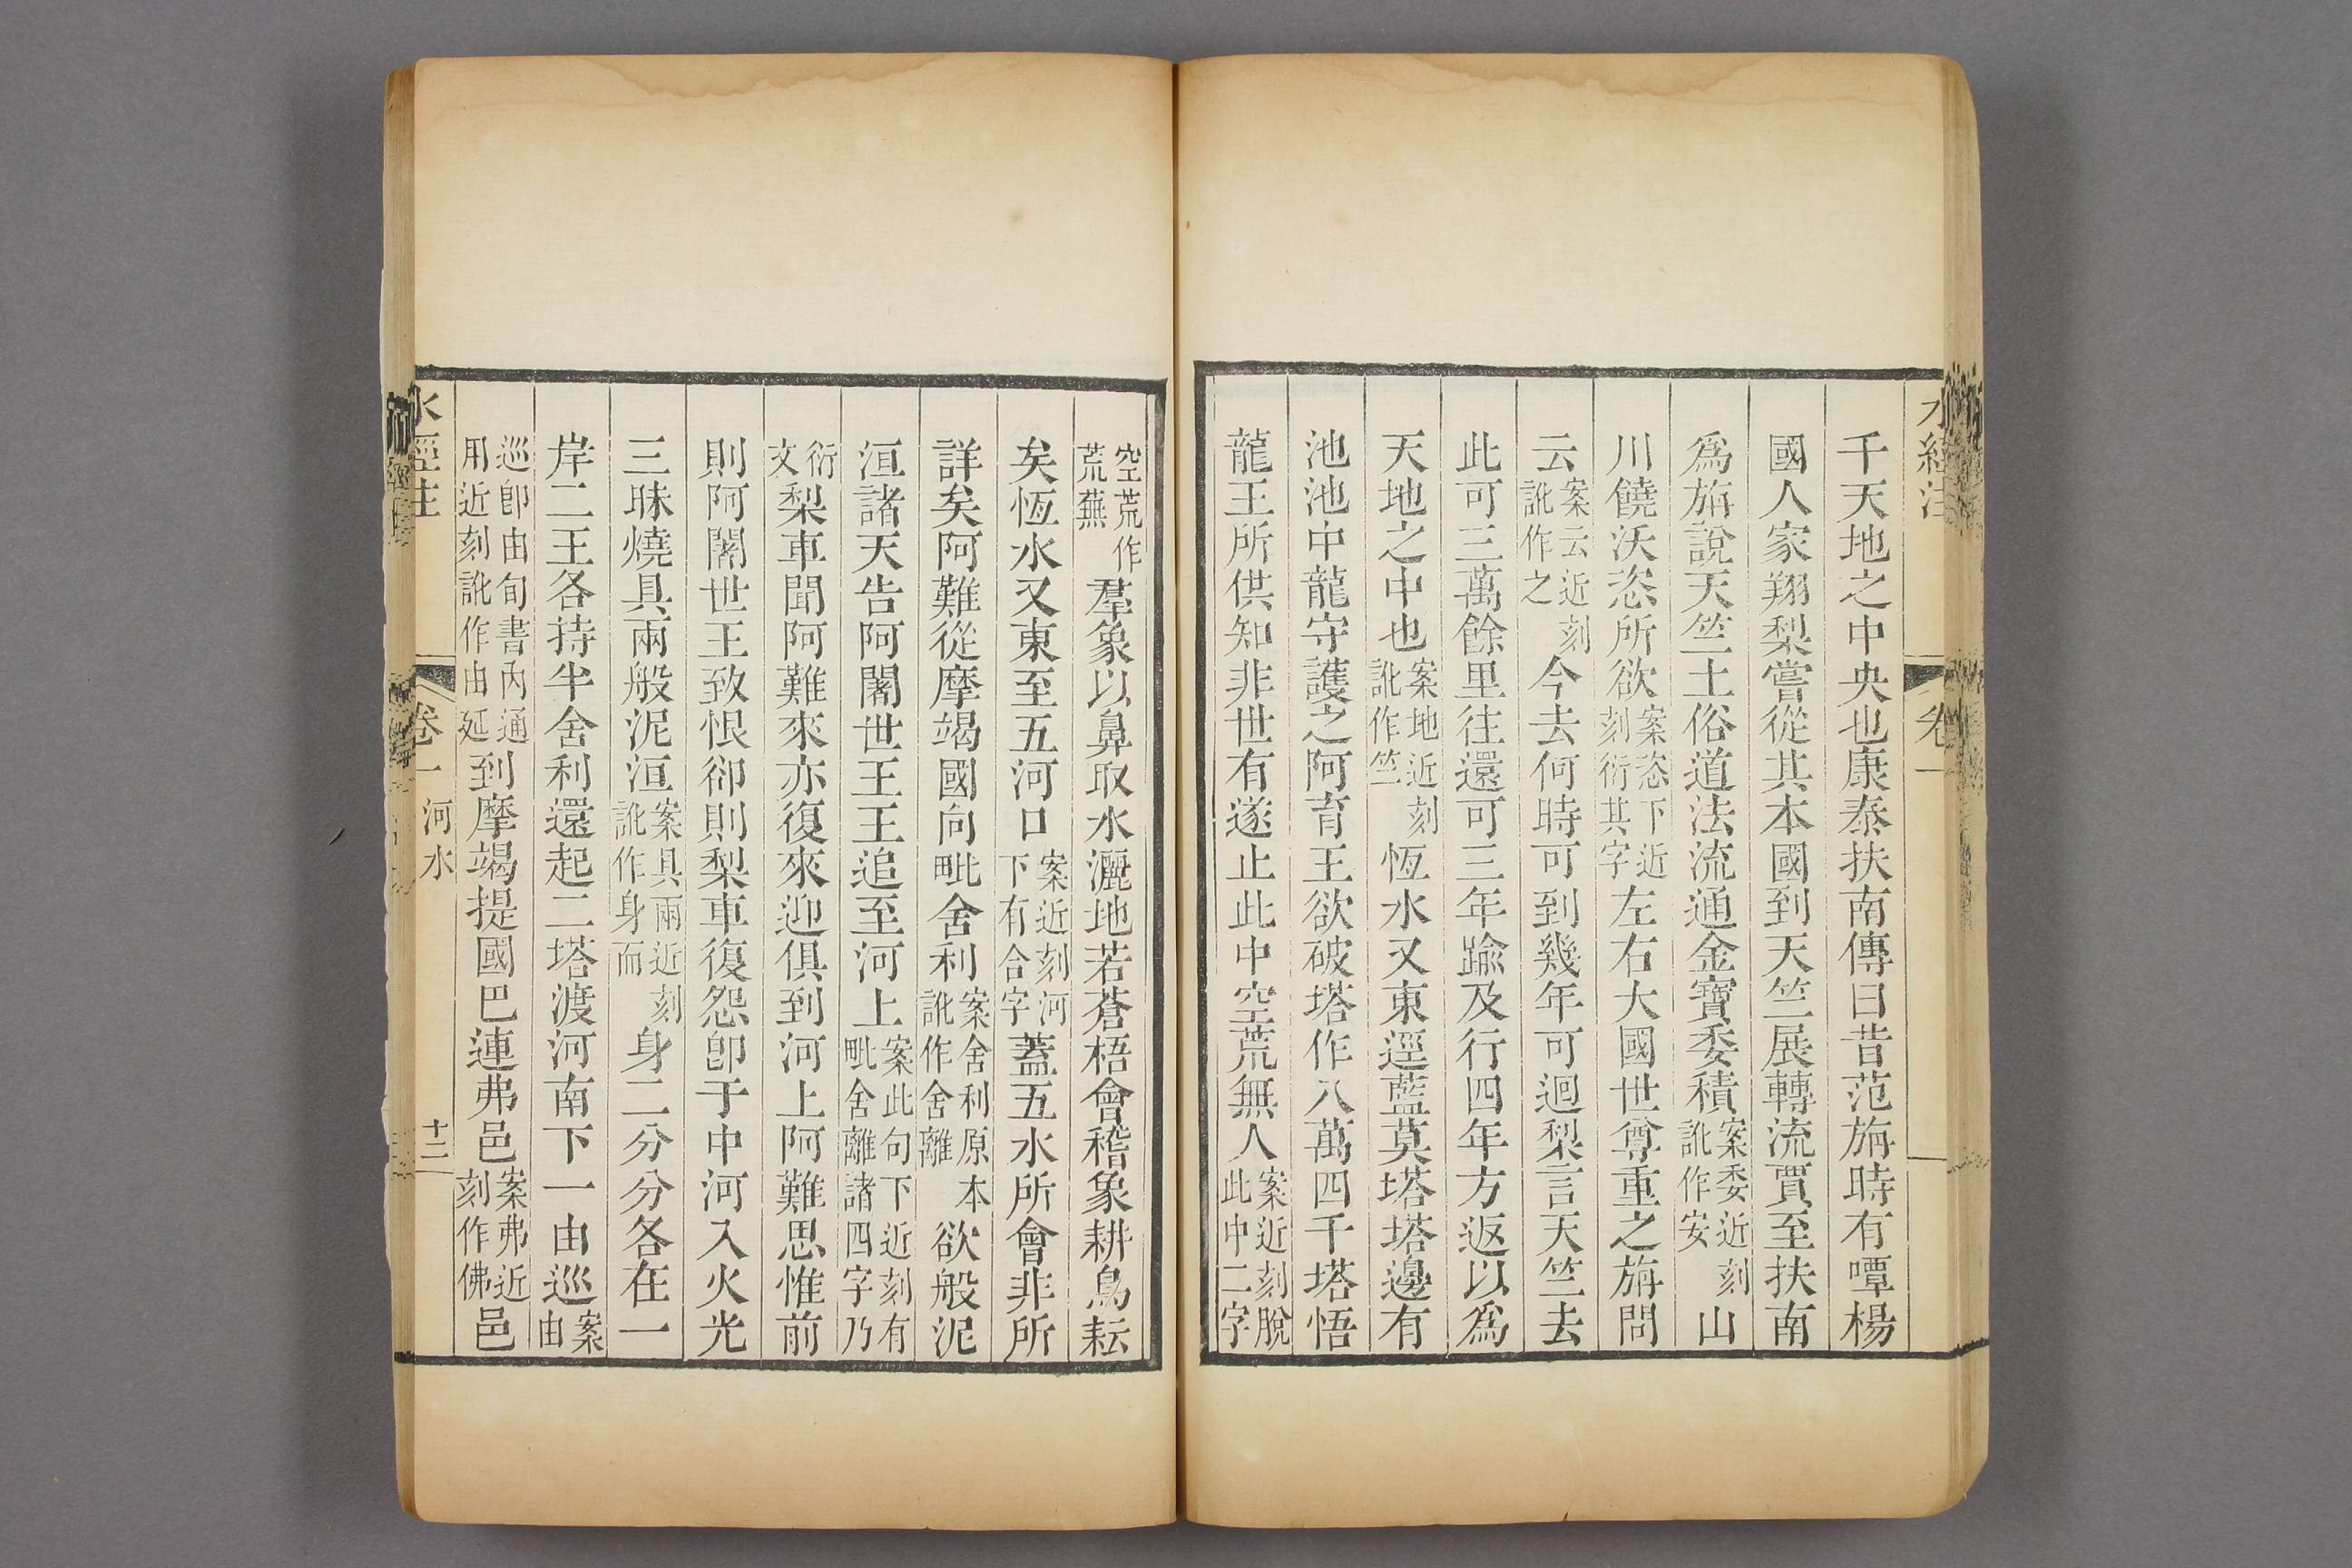 水經注 卷一
千天地之中央也康泰扶南傳曰昔范旃時有嘾楊
國人家翔梨嘗從其本國到天竺展轉流賈至扶南
爲旃說天竺土俗道法流通金寶委積案委近刻訛作安山
川饒沃恣所欲案恣下近刻衍其字左右大國世尊重之旃問
云案云近刻訛作之今去何時可到幾年可迴梨言天竺去
此可三萬餘里往還可三年踰及行四年方返以爲
天地之中也案地近刻訛作竺恆水又東逕藍莫塔塔邊有
池池中龍守護之阿育王欲破塔作八萬四千塔悟
龍王所供知非世有遂止此中空荒無人案近刻脫此中二字
空荒作荒蕪羣象以鼻取水灑地若蒼梧會稽象耕鳥耘
矣恆水又東至五河口案近刻河下有合字蓋五水所會非所
詳矣阿難從摩竭國向毗舍利案舍利原本訛作舍離欲般泥
洹諸天告阿闍世王王追至河上案此句下近刻有毗舍離諸四字乃
衍文梨車聞阿難來亦復來迎俱到河上阿難思惟前
則阿闍世王致恨卻則梨車復怨卽于中河入火光
三昧燒具兩般泥洹案具兩近刻訛作身而身二分分各在一
岸二王各持半舍利還起二塔渡河南下一由巡案由
巡卽由旬書內通用近刻訛作由延到摩竭提國巴連弗邑案弗近刻作佛邑
水經注 卷一 河水 十二